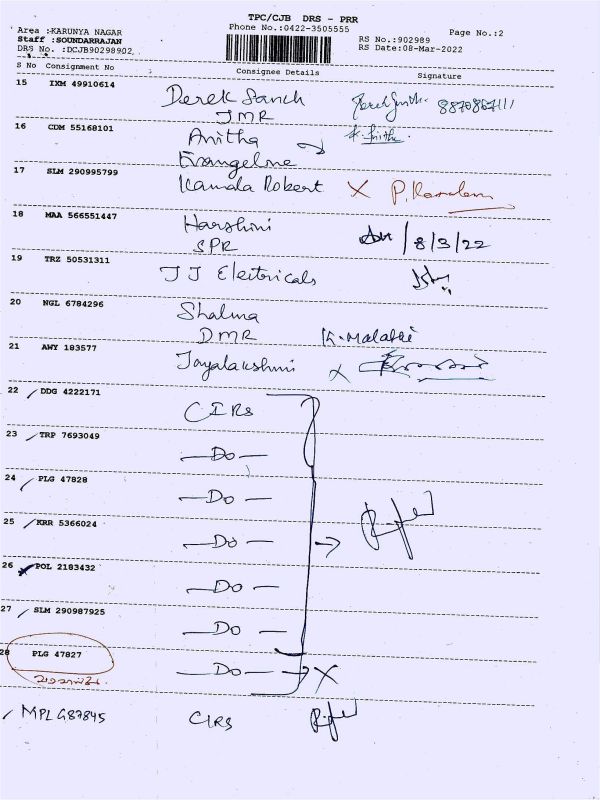 TPC/CJB DRS - PRR
Area :KARUNYA NAGAR Phone No.:0422-3505555 Page No.:2
Staff :SOUNDARRAJAN RS No.:902989
DRS No. :DCJB90298902 RS Date:08-Mar-2022
S No Consignment No Consignee Details Signature
15 IXM 49910614 Derek Sanch 8870867111
JMR
16 CDM 55168101 Anitha
Evangeline
17 SLM 290995799 Kamala Robert X
18 MAA 566551447 Harshini 8/3/22
SPR
19 TRZ 50531311 JJ Electricals
20 NGL 6784296 Shalma
DMR K. Malathi
21 AWY 183577 Jayalakshmi X
22 DDG 4222171 CIRS
23 TRP 7693049 — Do —
24 PLG 47828 — Do —
25 KRR 5366024 — Do —
26 POL 2183432 — Do —
27 SLM 290987925 — Do —
28 PLG 47827 — Do — → X
MPL 687845 CIRS